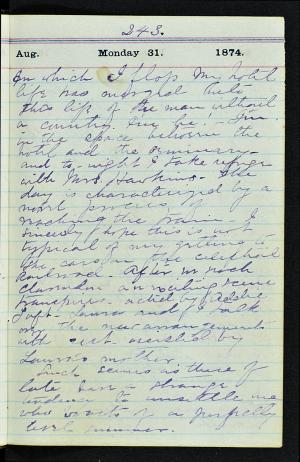 243.
Aug. Monday 31. 1874.
In which I flop. My hotel
life has merged into
this life of the man without
a country. I'm he! I'm
in the space between the
hotel and the seminary
and to-night I take refuge
with Mrs. Hawkins. The
day is characterized by a
most process of
reaching the train. I
sincerely I hope this is not
typical of my getting to
the cars on the celestial
Railroad. After much
a scene
transpires acted by
Laura and I talk
the new arrangements
with by
Laura's mother.
Such scenes as these of
late have a strange
tendency to unsettle me
who wants of a perfectly
level summer.